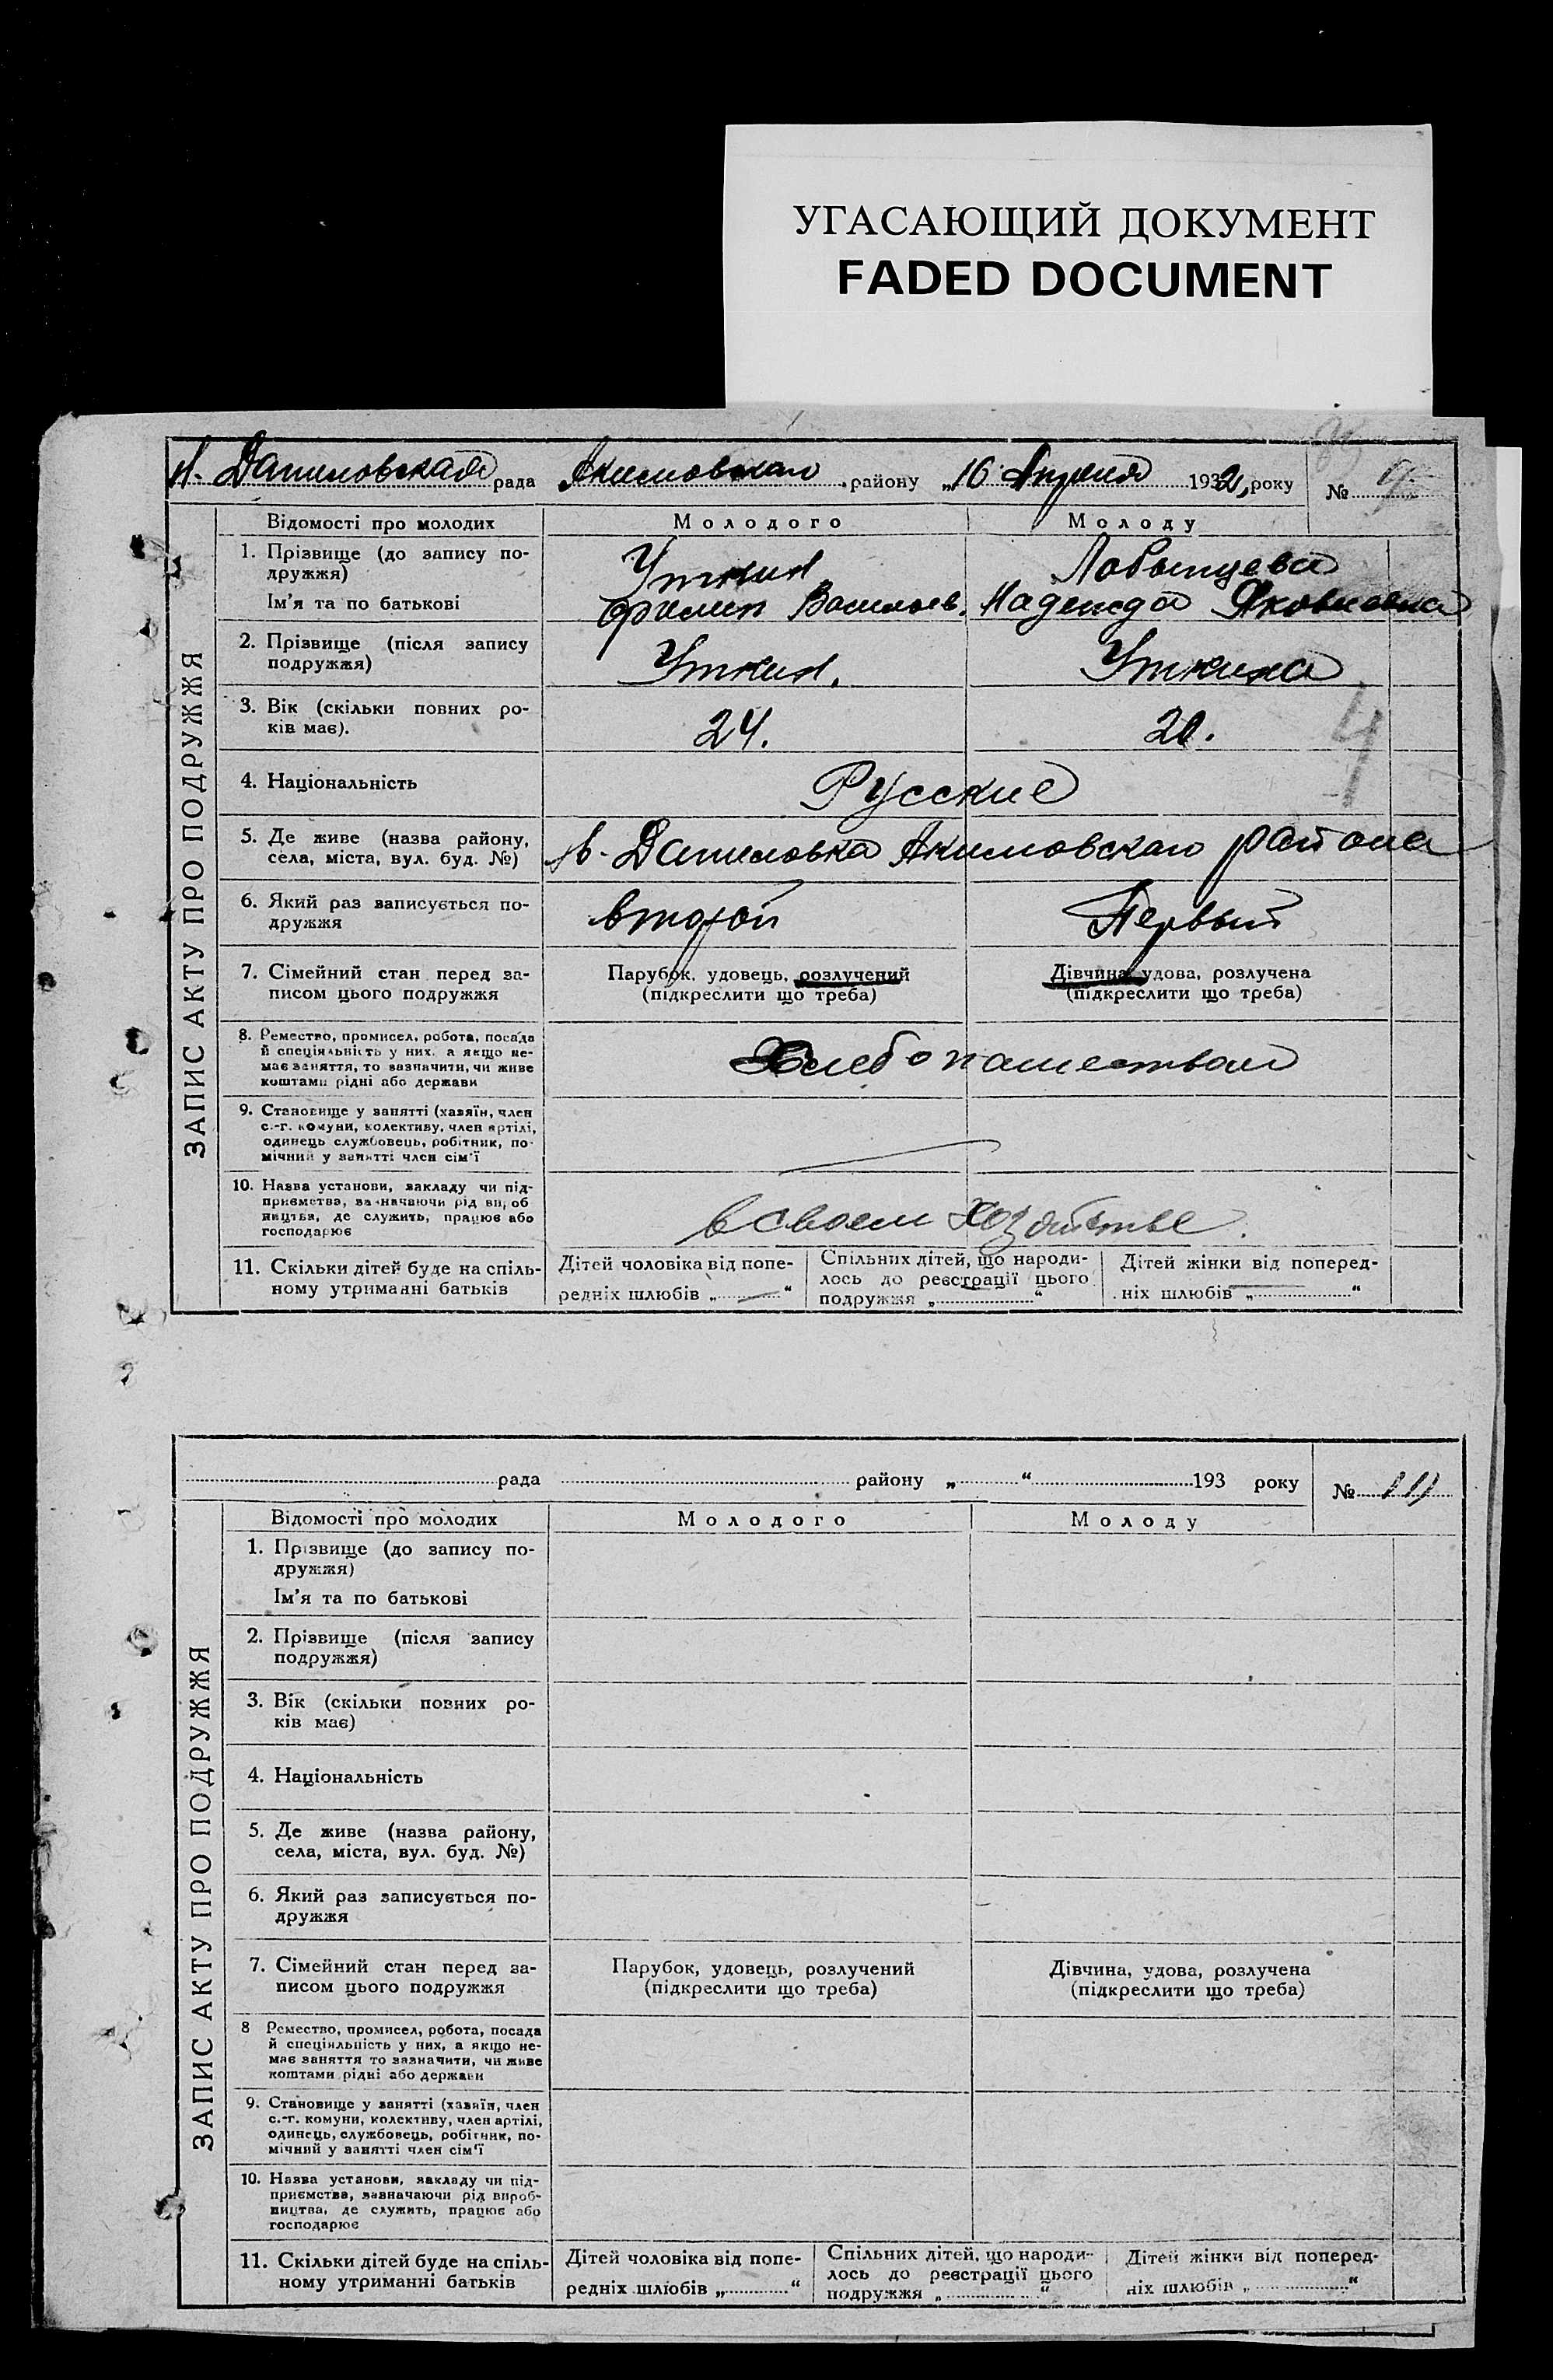 УГАСАЮЩИЙ ДОКУМЕНТ
FADED DOCUMENT
Н. Даниловская рада Акимовского району „16 Апреля 1932, року № 9
ЗАПИС АКТУ ПРО ПОДРУЖЖЯ
Відомості про молодих Молодого Молоду
1. Прізвище (до запису по-
дружжя) Уткин Лобынцева
Ім'я та по батькові Филип Васильев. Надежда Яковлевна
2. Прізвище (після запису
подружжя) Уткин. Уткина
3. Вік (скільки повних ро-
ків має). 24. 20.
4. Національність Русские
5. Де живе (назва району,
села, міста, вул. буд. №) Н. Даниловка Акимовского района
6. Який раз записується по-
дружжя второй Первый
7. Сімейний стан перед за- Парубок, удовець, розлучений Дівчина, удова, розлучена
писом цього подружжя (підкреслити що треба) (підкреслити що треба)
8. Ремество, промисел, робота, посада
й спеціяльність у них, а якщо не-
має заняття, то зазначити, чи живе
коштами рідні або держави Хлебопашеством
9. Становище у занятті (хазяїн, член
с.-г. комуни, колективу, член артілі,
одинець службовець, робітник, по-
мічний у занятті член сім'ї
10. Назва установи, закладу чи під-
приємства, зазначаючи рід вироб
ництва, де служить, працює або
господарює в своем хозяйстве.
11. Скільки дітей буде на спіль- Дітей чоловіка від попе- Спільних дітей, що народи- Дітей жінки від поперед-
ному утриманні батьків редніх шлюбів „ — “ лось до реєстрації цього ніх шлюбів „ “
подружжя „ “
рада району „ “ 193 року №
ЗАПИС АКТУ ПРО ПОДРУЖЖЯ
Відомості про молодих Молодого Молоду
1. Прізвище (до запису по-
дружжя)
Ім'я та по батькові
2. Прізвище (після запису
подружжя)
3. Вік (скільки повних ро-
ків має)
4. Національність
5. Де живе (назва району,
села, міста, вул. буд. №)
6. Який раз записується по-
дружжя
7. Сімейний стан перед за- Парубок, удовець, розлучений Дівчина, удова, розлучена
писом цього подружжя (підкреслити що треба) (підкреслити що треба)
8 Ремество, промисел, робота, посада
й спеціяльність у них, а якщо не-
має заняття то зазначити, чи живе
коштами рідні або держави
9. Становище у занятті (хазяїн, член
с.-г. комуни, колективу, член артілі,
одинець, службовець, робітник, по-
мічний у занятті член сім'ї
10. Назва установи, закладу чи під-
приємства, зазначаючи рід вироб-
ництва, де служить, працює або
господарює
11. Скільки дітей буде на спіль- Дітей чоловіка від попе- Спільних дітей, що народи- Дітей жінки від поперед-
ному утриманні батьків редніх шлюбів „ “ лось до реєстрації цього ніх шлюбів „ “
подружжя „ “